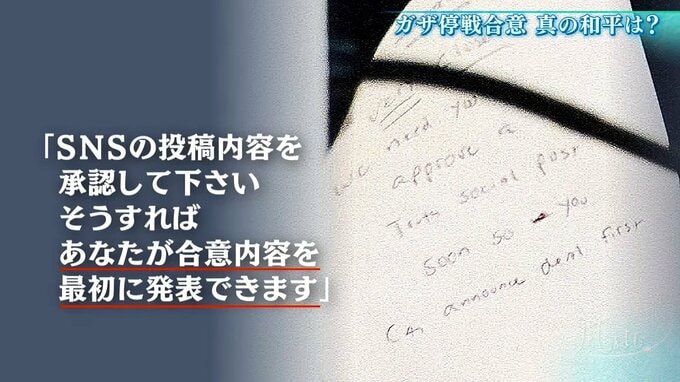 ガザ停戦合意 真の和平は？
「SNSの投稿内容を
承認して下さい
そうすれば
あなたが合意内容を
最初に発表できます」
VERY close
we need you
approve a
Truth social post
soon so you
can announce deal first